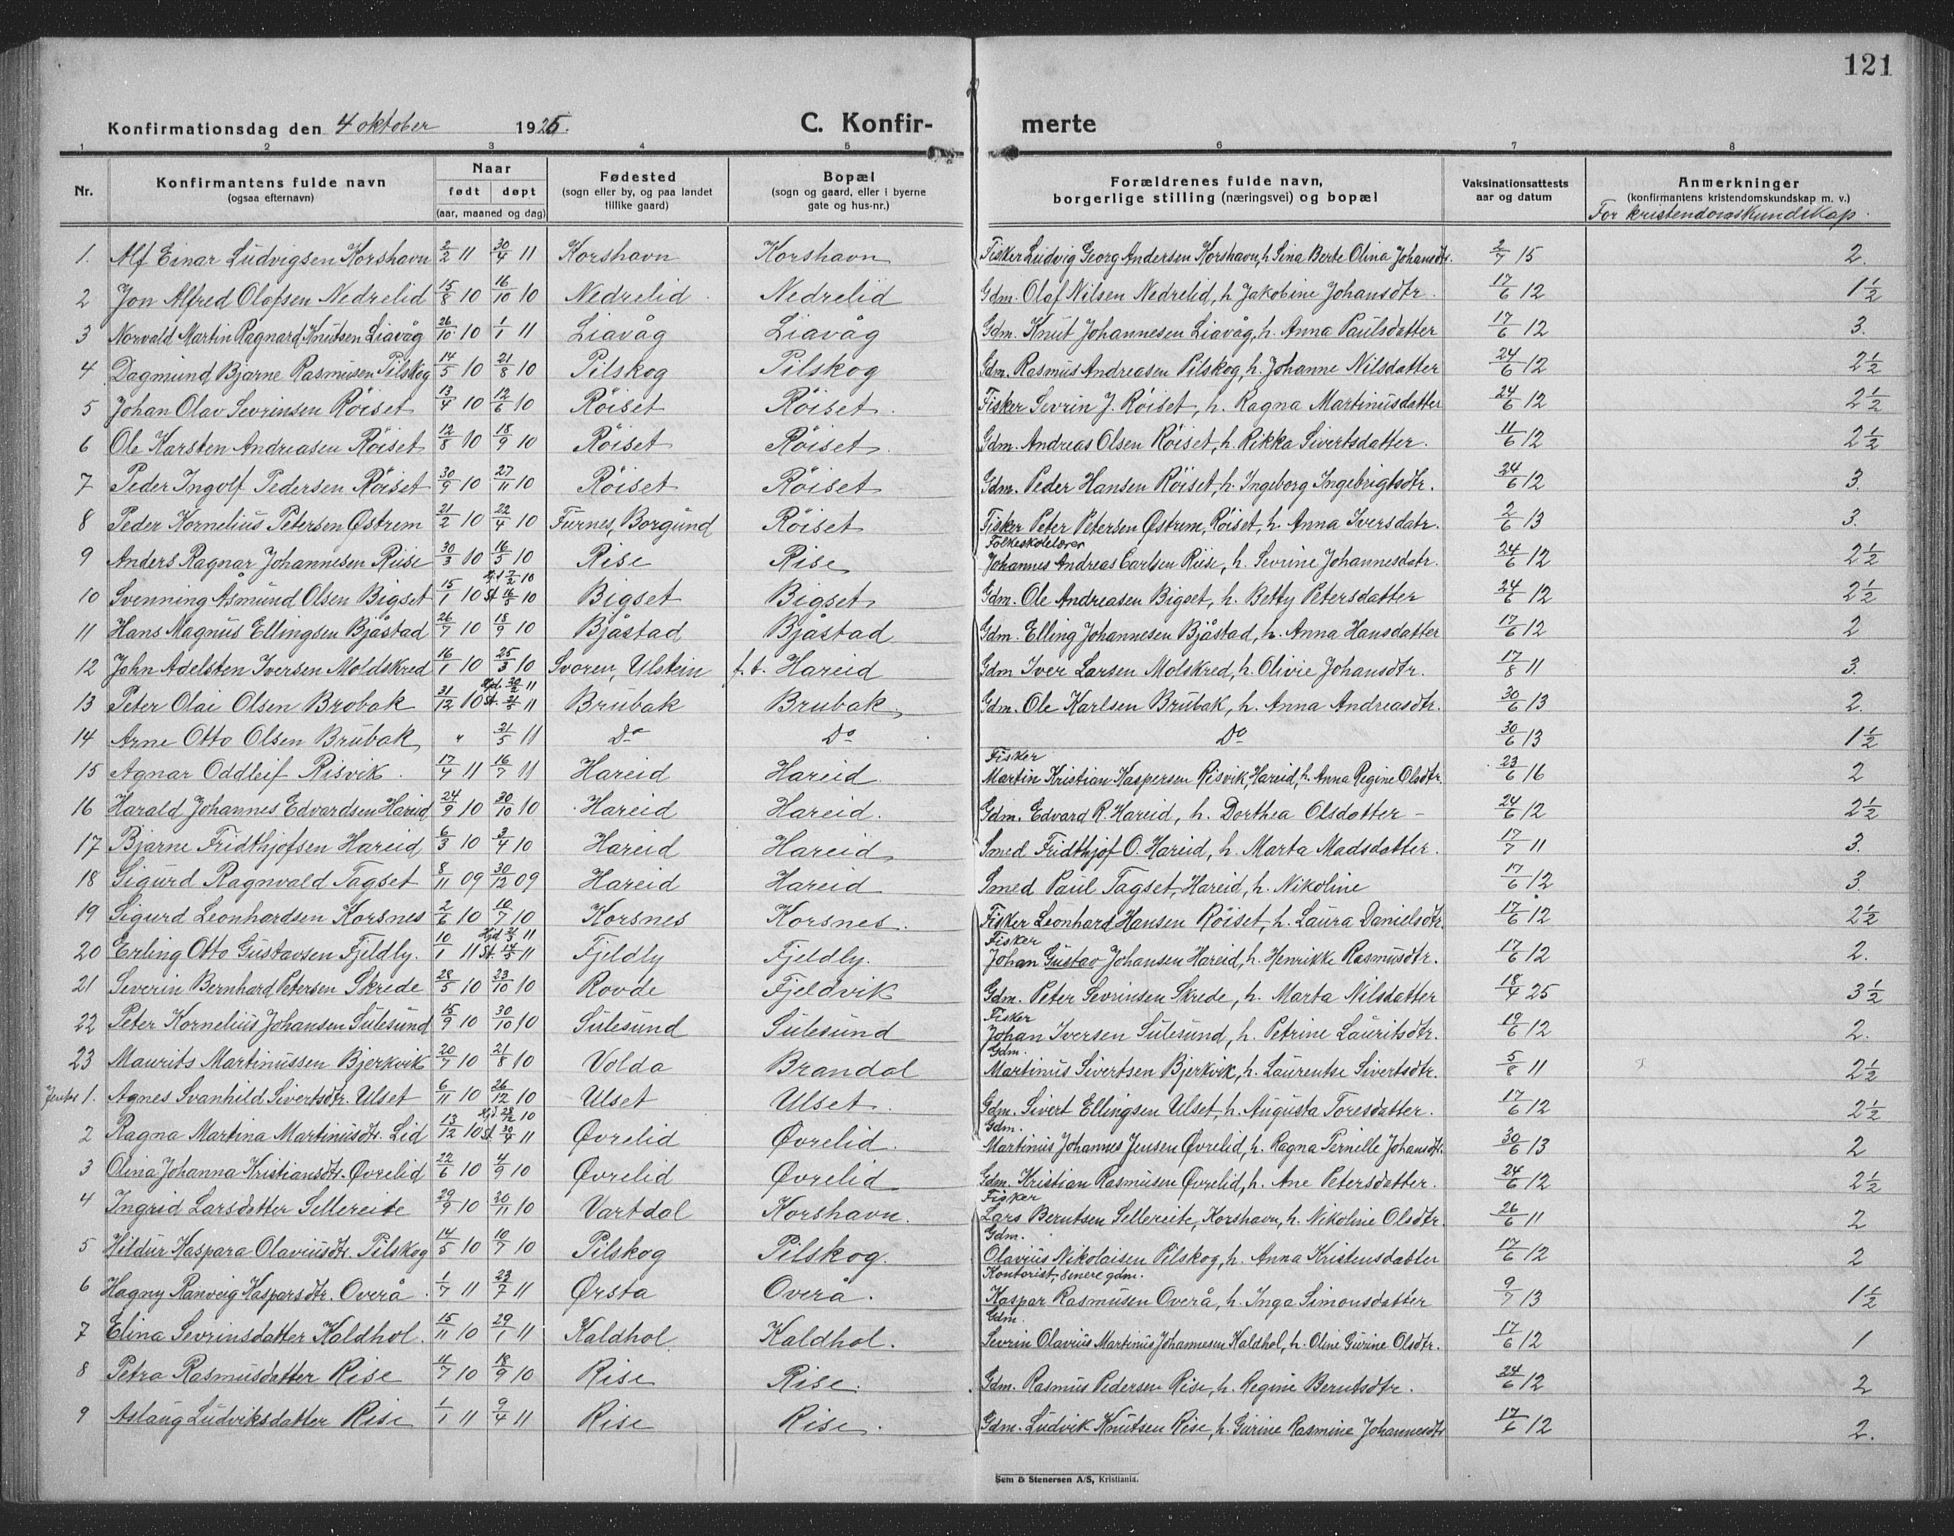 121
Konfirmationsdag den 4 oktober 1925. C. Konfir- merte
1 2 3 4 5 6 7 8
Nr. Konfirmantens fulde navn (ogsaa efternavn) Naar født døpt (aar, maaned og dag) Fødested (sogn eller by, og paa landet tillike gaard) Bopæl (sogn og gaard, eller i byerne gate og hus-nr.) Forældrenes fulde navn, borgerlige stilling (næringsvei) og bopæl Vaksinationsattests aar og datum Anmerkninger (konfirmantens kristendomskundskap m. v.)
For kristendomskundskap.
1. Alf Einar Ludvigsen Korshavn 2/2 11 30/4 11 Korshavn Korshavn Fisker Ludvig Georg Andersen Korshavn, h. Sina Berte Olina Johansdtr. 2/7 15 2.
2 Jon Alfred Olafsen Nedrelid 15/8 10 16/10 10 Nedrelid Nedrelid Gdm. Olaf Nilsen Nedrelid, h. Jakobine Johansdtr. 17/6 12 1 1/2
3 Norvald Martin Ragnard Knutsen Liavåg 26/10 10 1/1 11 Liavåg Liavåg Gdm. Knut Johannesen Liavåg, h. Anna Paulsdatter 17/6 12 3.
4 Dagmund Bjarne Rasmusen Pilskog 14/5 10 21/8 10 Pilskog Pilskog Gdm. Rasmus Andreasen Pilskog, h. Johanne Nilsdatter 24/6 12 2 1/2
5 Johan Olav Sevrinsen Röiset 13/4 10 12/6 10 Röiset Röiset. Fisker Sevrin J. Röiset, h. Ragna Martinusdatter 24/6 12 2 1/2
6 Ole Karsten Andreasen Röiset 12/8 10 18/9 10 Röiset Röiset. Gdm. Andreas Olsen Röiset, h. Rikka Sivertsdatter. 11/6 12 2 1/2
7 Peder Ingolf Pedersen Röiset 30/9 10 27/11 10 Röiset Röiset Gdm. Peder Hansen Röiset, h. Ingeborg Ingebrigtsdtr. 24/6 12 3.
8 Peder Kornelius Petersen Østrem 21/2 10 22/4 10 Furnes, Borgund Röiset Fisker Peter Petersen Østrem, Röiset, h. Anna Iversdatr. 2/6 13 3.
9 Anders Ragnar Johannesen Riise 30/3 10 16/5 10 Rise Rise Folkeskolelærer Johannes Andreas Carlsen Riise, h. Sevrine Johannesdatr. 24/6 12 2 1/2
10 Svenning Åsmund Olsen Bigset 15/1 10 Hjd 7/2 10 St. 16/5 10 Bigset Bigset Gdm. Ole Andreasen Bigset, h. Betty Petersdatter 24/6 12 2 1/2
11 Hans Magnus Ellingsen Bjåstad 26/7 10 18/9 10 Bjåstad Bjåstad Gdm. Elling Johannesen Bjåstad, h. Anna Hansdatter 17/6 12 2
12 John Adelsten Iversen Moldskred 16/1 10 25/3 10 Svoren, Ulstein f.t. Hareid Gdm Iver Larsen Molskred, h. Olivie Johansdtr. 17/8 11 3.
13 Peter Olai Olsen Brobak 31/12 10 Hjd. 20/2 11 St. 21/5 11 Brubak Brubak. Gdm. Ole Karlsen Brubak, h. Anna Andreasdtr. 30/6 13 2.
14 Arne Otto Olsen Brubak " 21/5 11 Do Do Do 30/6 13 1 1/2
15 Agnar Oddleif Risvik. 17/4 11 16/7 11 Hareid Hareid. Fisker Martin Kristian Kaspersen Risvik, Hareid, h. Anna Regine Olsdtr. 23/6 16 2
16 Harald Johannes Edvardsen Hareid 24/9 10 30/10 10 Hareid Hareid. Gdm. Edvard R. Hareid, h. Dorthea Olsdatter 24/6 12 2 1/2
17 Bjarne Fridthjofsen Hareid 6/3 10 3/4 10 Hareid Hareid Smed Fridthjof O. Hareid, h. Marta Madsdatter. 17/7 11 3.
18 Sigurd Ragnvald Tagset 8/11 09 30/12 09 Hareid Hareid Smed Paul Tagset, Hareid, h. Nikoline 17/6 12 3.
19 Sigurd Leonhardsen Korsnes 2/6 10 10/7 10 Korsnes Korsnes. Fisker Leonhard Hansen Röiset, h. Laura Danielsdtr. 17/6 12 2 1/2
20 Erling Otto Gustavsen Fjeldly. 10/1 11 Hjd 2/3 11 St. 14/5 11 Fjeldly Fjeldly. Fisker Johan Gustav Johansen Hareid, h. Henrikke Rasmusdtr. 17/6 12 2.
21 Severin Bernhard Petersen Skrede 28/5 10 23/10 10 Rovde Fjeldvik Gdm. Peter Sevrinsen Skrede, h. Marta Nilsdatter 18/4 25 3 1/2
22 Peter Kornelius Johansen Sulesund 15/9 10 30/10 10 Sulesund Sulesund Fisker Johan Iversen Sulesund, h. Petrine Lauritsdtr. 19/6 12 2.
23 Maurits Martinussen Bjerkvik 20/7 10 21/8 10 Volda Brandal Gdm. Martinus Sivertsen Bjerkvik, h. Laurentse Sivertsdtr. 5/8 11 2 1/2
Jenter 1. Agnes Svanhild Sivertsdtr. Ulset 6/11 10 26/12 10 Ulset Ulset. Gdm. Sivert Ellingsen Ulset, h. Augusta Toresdatter. 17/6 12 2 1/2
2 Ragna Martina Martinusdtr. Lid 13/12 10 Hjd 28/12 10 St. 30/4 11 Øvrelid Øvrelid. Gdm. Martinus Johannes Jensen Øvrelid, h. Ragna Pernille Johansdtr. 30/6 13 2
3 Olina Johanna Kristiansdtr. Øvrelid 22/6 10 4/9 10 Øvrelid Øvrelid Gdm. Kristian Rasmusen Øvrelid, h. Ane Petersdatter. 24/6 12 2 1/2
4 Ingrid Larsdatter Sellereite 29/9 10 20/11 10 Vartdal Korshavn. Fisker Lars Berntsen Sellereite, Korshavn, h. Nikoline Olsdtr. 26/6 11 2
5 Hildur Kaspara Olaviusdtr. Pilskog 14/5 10 10/7 10 Pilskog Pilskog. Gdm. Olavius Nikolaisen Pilskog, h. Anna Kristensdatter 17/6 12 2
6 Hagny Ranveig Kaspersdtr. Overå 1/7 11 23/7 11 Ørsta Overå. Kontorist, senere gdm. Kaspar Rasmusen Overå, h. Inga Simonsdatter 9/7 13 1 1/2
7 Elina Sevrinsdatter Kaldhol. 15/11 10 29/1 11 Kaldhol Kaldhol. Gdm. Sevrin Olavius Martinus Johannesen Kaldhol, h. Oline Gurine Olsdtr. 17/6 12 1
8 Petra Rasmusdatter Rise 11/7 10 18/9 10 Rise Rise. Gdm. Rasmus Pedersen Rise, h. Regine Berntsdtr. 24/6 12 2
9 Aslaug Ludviksdatter Rise 1/1 11 9/4 11 Rise Rise. Gdm. Ludvik Knutsen Rise, h. Gurine Rasmine Johannesdtr 17/6 12 2.
Sem & Stenersen A/S, Kristiania.